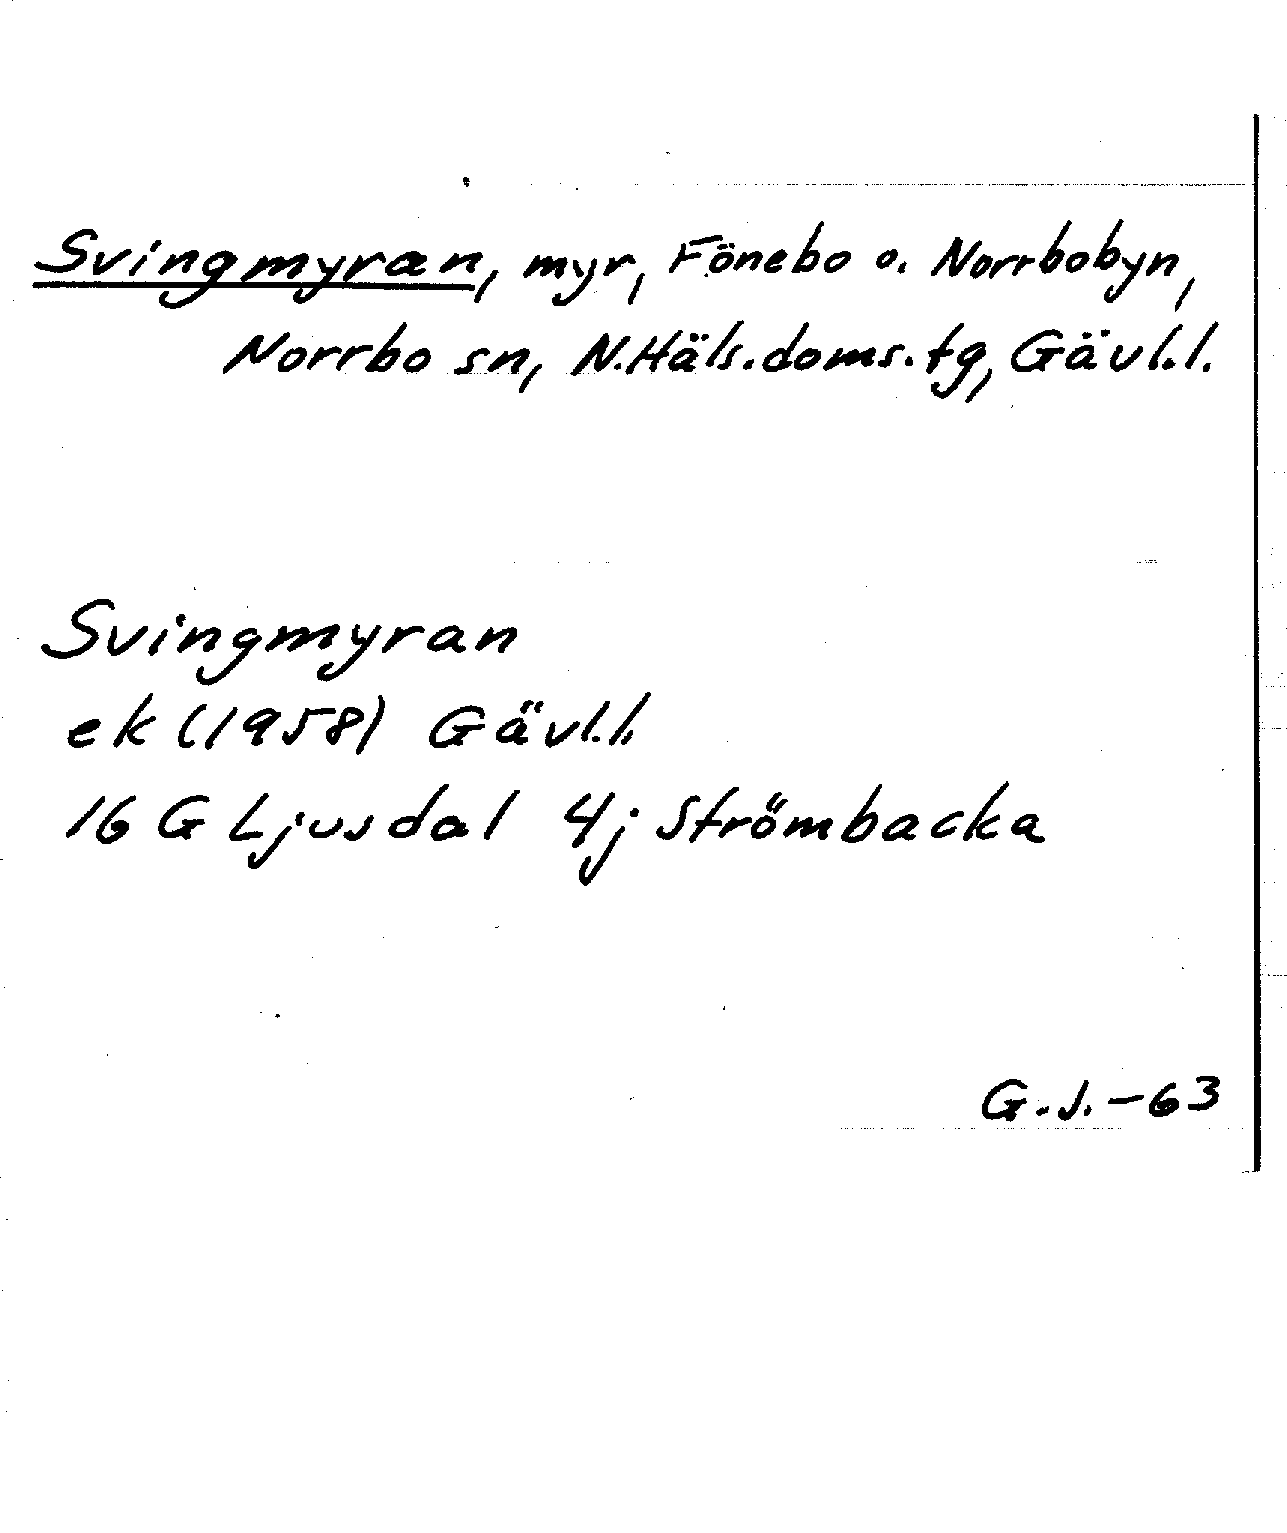 Svingmyran, myr, Fönebo o. Norrbobyn,
Norrbo sn, N.Häls.doms.tg, Gävl.l.
Svingmyran
ek (1958) Gävl.l.
16 G Ljusdal 4j Strömbacka
G.J.-63